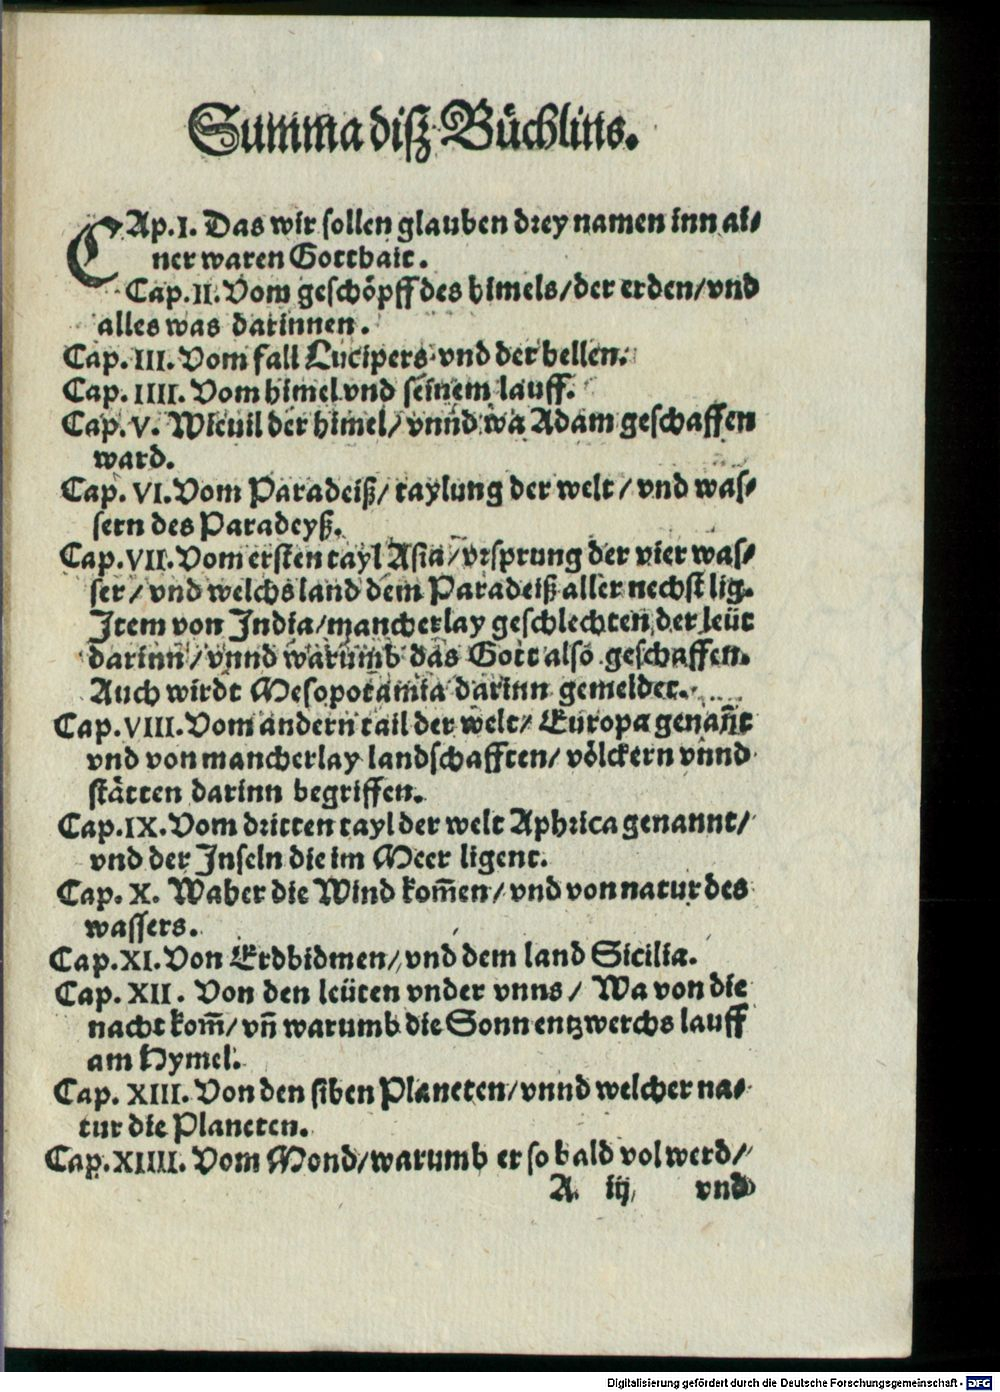 Summa diß Büchlins.
CAp. I. Das wir sollen glauben drey namen inn ai⸗
ner waren Gotthait.
Cap. II. Vom geschöpff des himels/der erden/vnd
alles was darinnen.
Cap. III. Vom fall Lucipers vnd der hellen.
Cap. IIII. Vom himel vnd seinem lauff.
Cap. V. Wieuil der himel/ vnnd wa Adam geschaffen
ward.
Cap. VI. Vom Paradeiß/ taylung der welt/ vnd was⸗
sern des Paradeyß.
Cap. VII. Vom ersten tayl Asia/vrsprung der vier was⸗
ser/ vnd welchs land dem Paradeiß aller nechst lig.
Item von India/mancherlay geschlechten der leüt
darinn/ vnnd warumb das Gott also geschaffen.
Auch wirdt Mesopotamia darinn gemeldet.
Cap. VIII. Vom andern tail der welt/ Europa genañt
vnd von mancherlay landschafften/ völckern vnnd
stätten darinn begriffen.
Cap. IX. Vom dritten tayl der welt Aphrica genannt/
vnd der Inseln die im Meer ligent.
Cap. X. Waher die Wind kom̄en/ vnd von natur des
wassers.
Cap. XI. Von Erdbidmen/ vnd dem land Sicilia.
Cap. XII. Von den leüten vnder vnns/ Wa von die
nacht kom̄/ vn̄ warumb die Sonn entzwerchs lauff
am Hymel.
Cap. XIII. Von den siben Planeten/vnnd welcher na⸗
tur die Planeten.
Cap. XIIII. Vom Mond/warumb er so bald vol werd/
A iij vnd
Digitalisierung gefördert durch die Deutsche Forschungsgemeinschaft - DFG